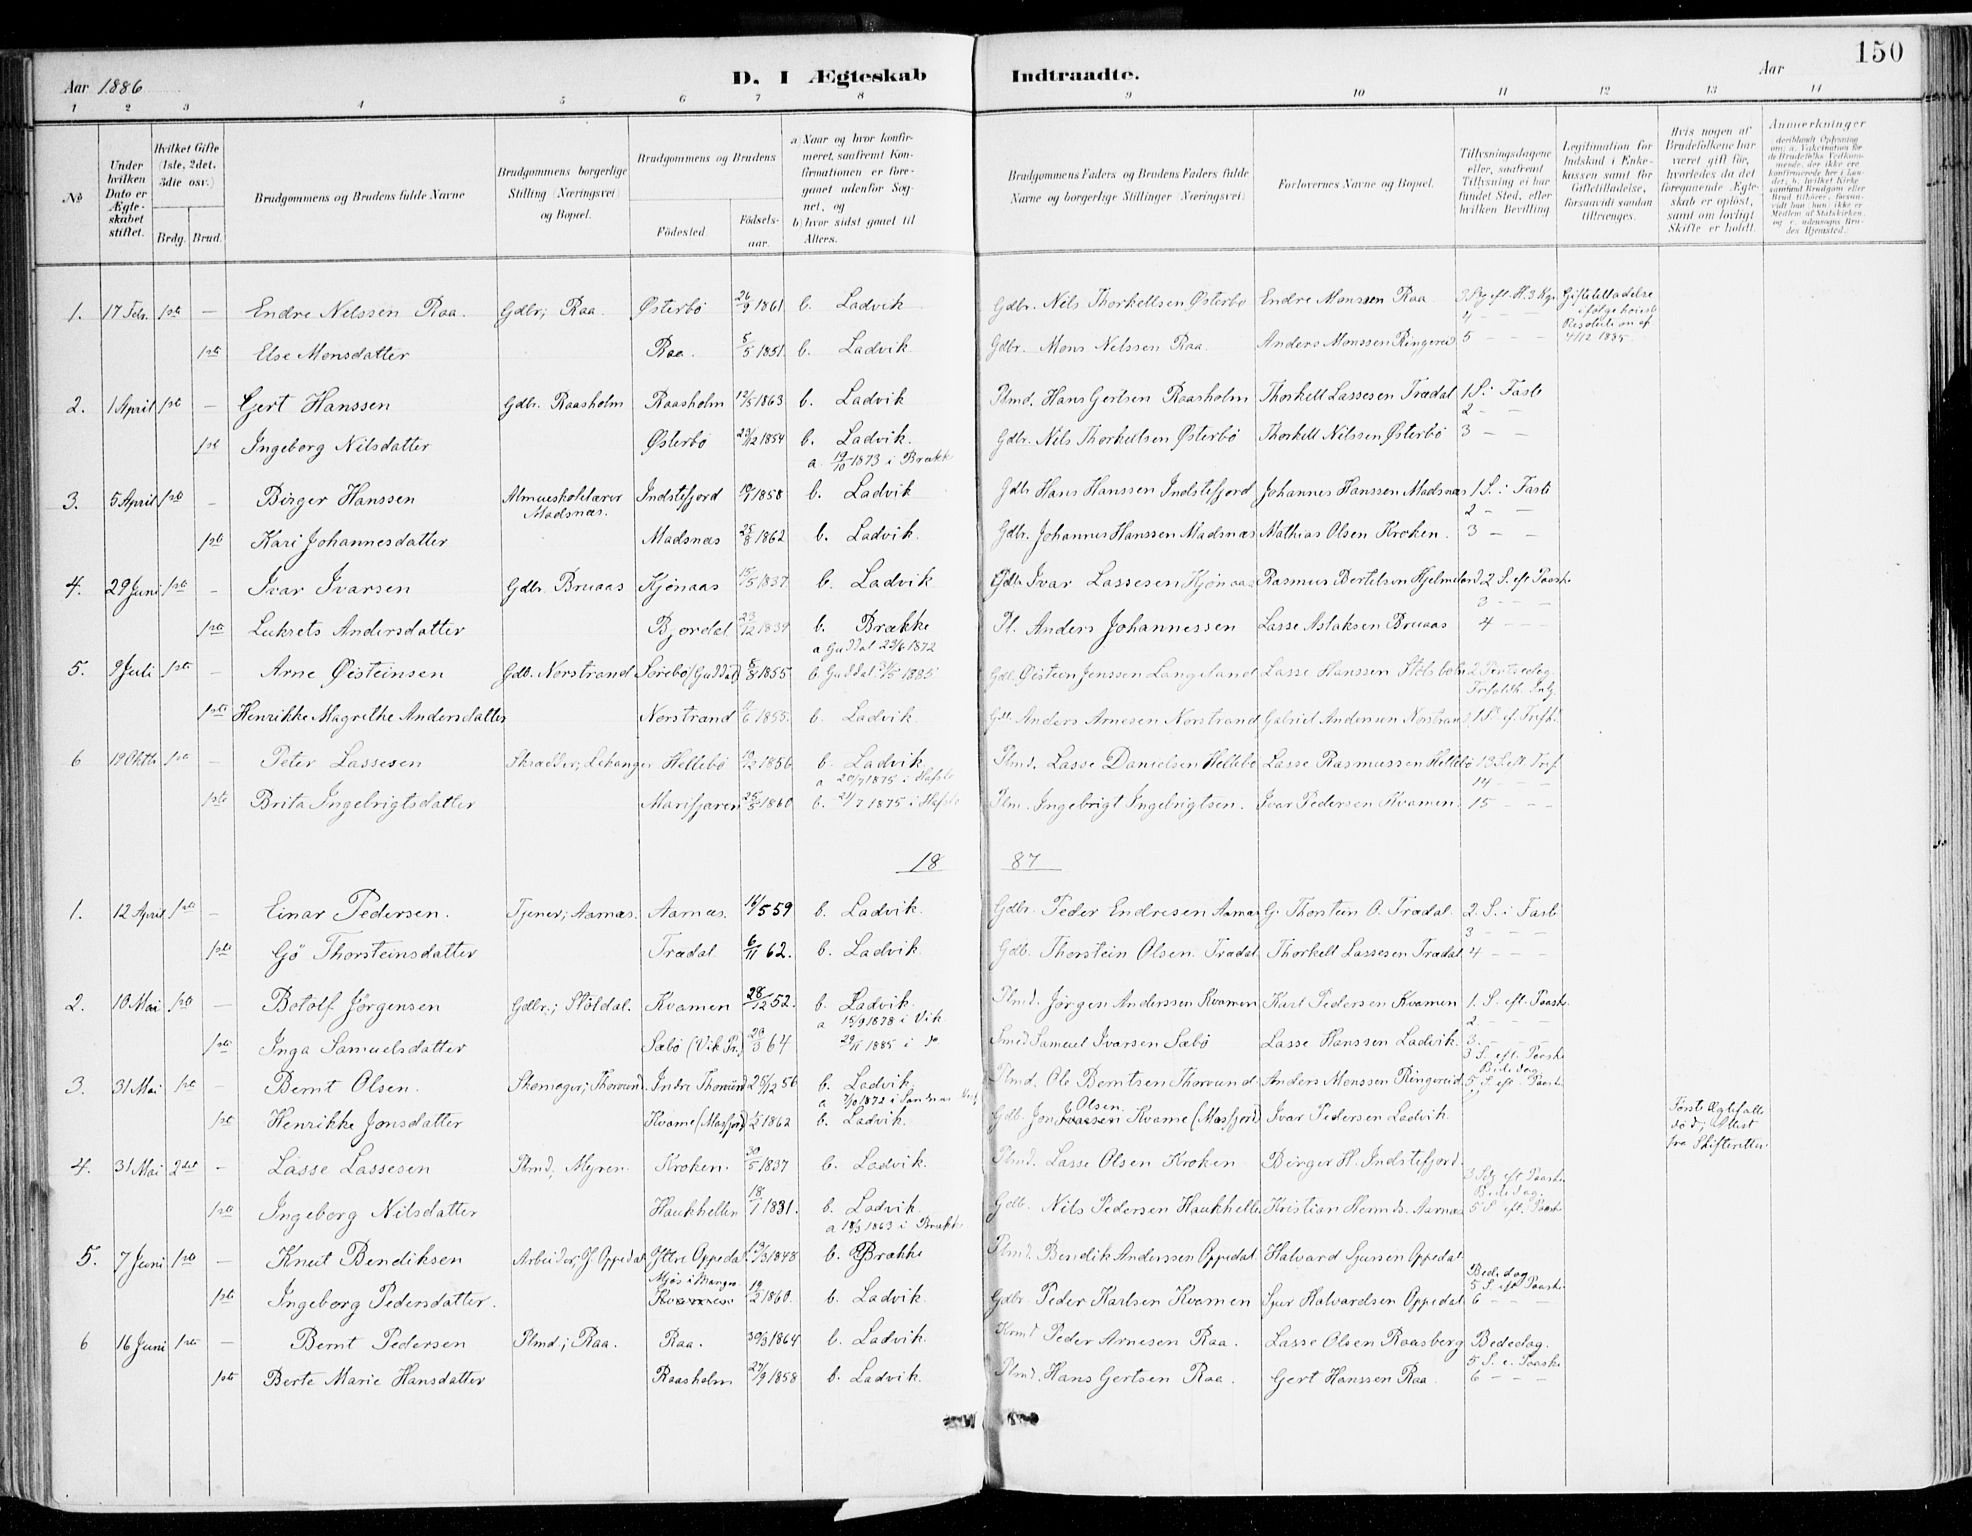 150
Aar 1886 D. I Ægteskab Indtraadte. Aar
1 2 3 4 5 6 7 8 9 10 11 12 13 14
No
Under hvilken Dato er Ægteskabet stiftet.
Hvilket Gifte (1ste, 2det, 3die osv.)
Brdg. Brud.
Brudgommens og Brudens fulde Navne
Brudgommens borgerlige Stilling (Næringsvei) og Bopæl.
Brudgommens og Brudens
Fødested. Fødselsaar.
a) Naar og hvor konfirmeret, saafremt Konfirmationen er foregaaet udenfor Sognet, og
b) hvor sidst gaaet til Alters.
Brudgommens Faders og Brudens Faders fulde Navne og borgerlige Stillinger (Næringsvei)
Forlovernes Navne og Bopæl.
Tillysningsdagene eller, saafremt Tillysning ei har fundet Sted, efter hvilken Bevilling
Legitimation for Indskud i Enkekassen samt for Giftetilladelse, forsaavidt saadan tiltrænges.
Hvis nogen af Brudefolkene har været gift før, hvorledes da det foregaaende Ægteskab er opløst, samt om lovligt Skifte er holdt.
Anmerkninger
1. 17 Febr. 1ste — Endre Nilssen Raa. Gdbr; Raa. Østerbø 26/9 1861 b. Ladvik Gdbr. Nils Thorkellsen Østerbø Endre Monssen Raa 3 Sg eft. H. 3 Kgr. Giftetilladelse
4 — — — ifølge høieste
1ste Else Monsdatter Raa. 5/5 1851. b. Ladvik Gdbr. Mons Nilssen Raa. Anders Monssen Ringereid 5 — — — Resolution af 4/12 1885.
2. 1 April 1ste — Gert Hanssen Gdbr. Raasholm Raasholm 12/5 1863 b. Ladvik Plmd. Hans Gertsen Raasholm Thorkell Lassesen Trædal 1 S. i Faste
2 — —
1ste Ingeborg Nilsdatter Østerbø 29/12 1854 b. Ladvik. Gdbr. Nils Thorkellsen Østerbø Thorkell Nilssen Østerbø 3 — —
a. 19/10 1873 i Brække
3. 5 April 1ste — Birger Hanssen Almueskolelærer Madsnæs. Indstefjord 1858 b. Ladvik Gdbr Hans Hanssen Indstefjord Johannes Hanssen Madsnæs 1 S. i Faste
2 — —
1ste Kari Johannesdatter Madsnæs 25/8 1862 b. Ladvik. Gdbr. Johannes Hanssen Madsnæs Mathias Olsen Kroken. 3 — —
4. 29 Juni 1ste — Ivar Ivarsen Gdbr. Bruaas Kjønaas 15/5 1837 b. Ladvik Gdbr Ivar Lassesen Kjønaas Rasmus Bertelsen Hjelmeland 2 S. eft Paaske
3 — — —
1ste Lukrets Andersdatter Bjordal 23/12 1834 b. Brække Pl. Anders Johannessen Lasse Aslaksen Bruaas 4 — —
a Guddal 23/6 1872
5. 9 Juli 1ste — Arne Øisteinsen Gdb. Norstrand Sørebø (Guddal) 8/8 1855 b Guddal 1885 Gdb. Øistein Jenssen Langeland Lasse Hanssen Stølsbotn 2 Pintsedag
1ste Henrikke Magrethe Andersdatter Norstrand 1855. b. Ladvik. Gdb. Anders Arnesen Norstrand Gabriel Andersen Norstrand
6 19 Oktbr 1ste — Peter Lassesen Skrædder; Lehanger Hellebø 1856 b. Ladvik Plmd. Lasse Danielsen Hellebø Lasse Rasmussen Hellebø 13 S. eft Tref.
a 20/7 1875 i Hafslo 14 — —
1ste Brita Ingebrigtsdatter Marifjæren 25/8 1860 b. 21/7 1875 i Hafslo Plm. Ingebrigt Ingebrigtsen. Ivar Pedersen Kvamen. 15 — — —
18 87
1. 12 April 1ste — Einar Pedersen. Tjener; Aarnæs. Aarnæs. 16/5 59 b. Ladvik. Gdbr. Peder Endresen Aarnæs G. Thorstein O. Trædal. 2. S. i Faste
3 — — —
1ste Gjø Thorsteinsdatter Trædal. 6/11 62. b. Ladvik. Gdb. Thorstein Olsen Trædal Thorkell Lassesen Trædal 4 — —
2. 10 Mai 1ste — Botolf Jørgensen Gdbr.; Støldal. Kvamen 28/12 52. b. Ladvik. Plmd. Jørgen Anderssen Kvamen Kurt Pedersen Kvamen 1. S. eft. Paaske.
a 15/9 1878 i Vik 2 — — —
1ste Inga Samuelsdatter Sæbø (Vik Pr.) 20/3 64 1885 i do Smed Samuel Ivarsen Sæbø Lasse Hanssen Ladvik. 3 — — —
3. 31 Mai 1ste — Bernt Olsen. Skomager; Thorvund. Indre Thorvund 25/12 56 b. Ladvik. Plmd. Ole Berntsen Thorvund Anders Monssen Ringereid 3 S. eft. Paaske
Bededag
5 S eft Paaske
1ste Henrikke Jonsdatter Kvame (Masfjord) 1862 b. Ladvik. Gdb. Jon Olsen Kvame (Masfjord) Ivar Pedersen Ladvik.
4. 31 Mai 2det — Lasse Lassesen Plmd, Myren. Kroken. 30/5 1837 b. Ladvik. Plmd. Lasse Olsen Kroken Birger H. Indstefjord. Første Ægtefælle død; Attest fra Skifteretten
3 Sg eft Paaske
Bededag
1ste Ingeborg Nilsdatter Haukhellen 18/7 1831. b. Ladvik. Gdbr. Nils Pedersen Haukhelle Kristian Hennds. Aarnæs 5 S eft. Paaske
a 1863 i Brække
5. 7 Juni 1ste — Knut Bendiksen Arbeider; Y. Oppedal Yttre Oppedal. 1848 b. Brække Plmd. Bendik Anderssen Oppedal Halvard Sjursen Oppedal
Mjøs i Manger Bededag
1ste Ingeborg Pedersdatter. Kvamen 1860. b. Ladvik. Gdbr. Peder Karlsen Kvamen Sjur Halvardsen Oppedal 5 S. eft Paaske
6 — — —
6 16 Juni 1ste — Bernt Pedersen Plmd; Raa. Raa. 30/3 1864 b. Ladvik. Peder Arnesen Raa. Lasse Olsen Raasberg Bededag.
5 S. e. Paaske
1ste Berte Marie Hansdatter Raasholm 27/9 1858 b. Ladvik. Plmd. Hans Gertsen Raa. Gert Hanssen Raa. 6 — — —